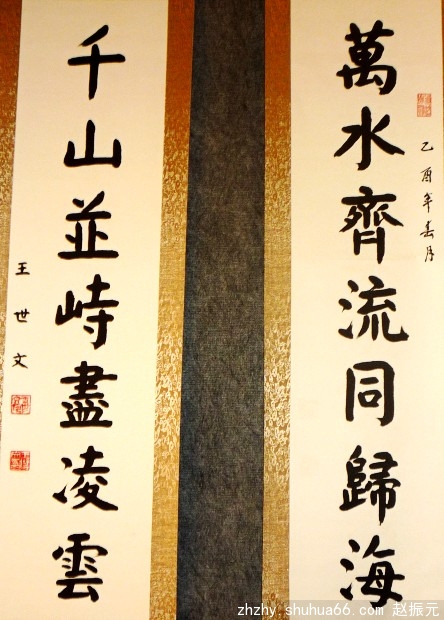 萬水齊流同歸海
乙酉年春月
千山並峙盡凌雲
王世文
zhzhy.shuhua66.com 赵振元